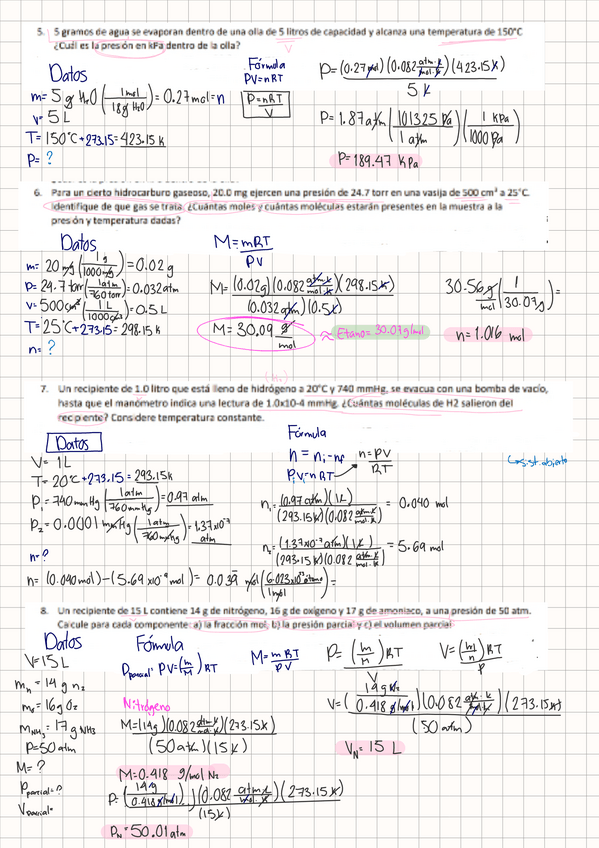 5. 5 gramos de agua se evaporan dentro de una olla de 5 litros de capacidad y alcanza una temperatura de 150°C
¿Cuál es la presión en kPa dentro de la olla?
Datos
m= 5 g H₂O (1mol/18g H₂O) = 0.27mol=n
V= 5 L
T= 150°C +273.15= 423.15 K
P= ?
Fórmula
PV=nRT
P=nRT/V
P=(0.27mol)(0.082 atm·L/mol·K)(423.15K)/5 L
P= 1.87atm (101325 Pa/1 atm)(1 KPa/1000 Pa)
P= 189.47 KPa
6. Para un cierto hidrocarburo gaseoso, 20.0 mg ejercen una presión de 24.7 torr en una vasija de 500 cm³ a 25°C.
Identifique de que gas se trata. ¿Cuántas moles y cuántas moléculas estarán presentes en la muestra a la
presión y temperatura dadas?
Datos
m= 20 mg (1g/1000mg) = 0.02 g
P= 24.7 torr (1atm/760torr) = 0.032atm
V= 500cm³ (1L/1000cm³) = 0.5L
T= 25°C +273.15= 298.15 K
n= ?
M=mRT/PV
M= (0.02g)(0.082 atm·L/mol·K)(298.15K)/(0.032atm)(0.5L)
M= 30.09 g/mol
≈ Etano= 30.07g/mol
30.56 g/mol (1/30.07g) =
n= 1.016 mol
7. Un recipiente de 1.0 litro que está lleno de hidrógeno a 20°C y 740 mmHg, se evacua con una bomba de vacío,
hasta que el manómetro indica una lectura de 1.0x10-4 mmHg. ¿Cuántas moléculas de H2 salieron del
recipiente? Considere temperatura constante.
Datos
V= 1L
T= 20°C +273.15= 293.15K
P₁= 740mmHg (1atm/760mmHg) = 0.97 atm
P₂= 0.0001 mmHg (1atm/760mmHg) = 1.37x10⁻⁷ atm
n=?
Fórmula
n= nᵢ-nf
PᵢVᵢ=nRT
n=PV/RT
nᵢ= (0.97 atm)(1L)/(293.15K)(0.082 atm·L/mol·K) = 0.040 mol
n₂= (1.37x10⁻⁷ atm)(1L)/(293.15K)(0.082 atm·L/mol·K) = 5.69 mol
n= (0.040mol)-(5.69 x10⁻⁹ mol) = 0.039 mol (6.023x10²³ átomo/1mol) =
8. Un recipiente de 15 L contiene 14 g de nitrógeno, 16 g de oxígeno y 17 g de amoniaco, a una presión de 50 atm.
Calcule para cada componente: a) la fracción mol, b) la presión parcial y c) el volumen parcial
Datos
V=15 L
mₙ= 14 g n₂
m₀= 16g O₂
mNH₃= 17g NH₃
P=50 atm
M= ?
Pparcial=?
Vparcial=
Fórmula
Pparcial: PV=(m/M) RT
M= mRT/PV
P= (m/n) RT/V
V= (m/n) RT/P
Nitrógeno
M=(14g)(0.082 atm·L/mol·K)(273.15K)/(50atm)(15L)
M=0.418 g/mol N₂
P= (14g/0.418g/mol)(0.082 atm·L/mol·K)(273.15K)/(15L)
PN= 50.01atm
V= (14g N₂/0.418 g/mol)(0.082 atm·L/mol·K)(273.15K)/(50atm)
VN= 15 L